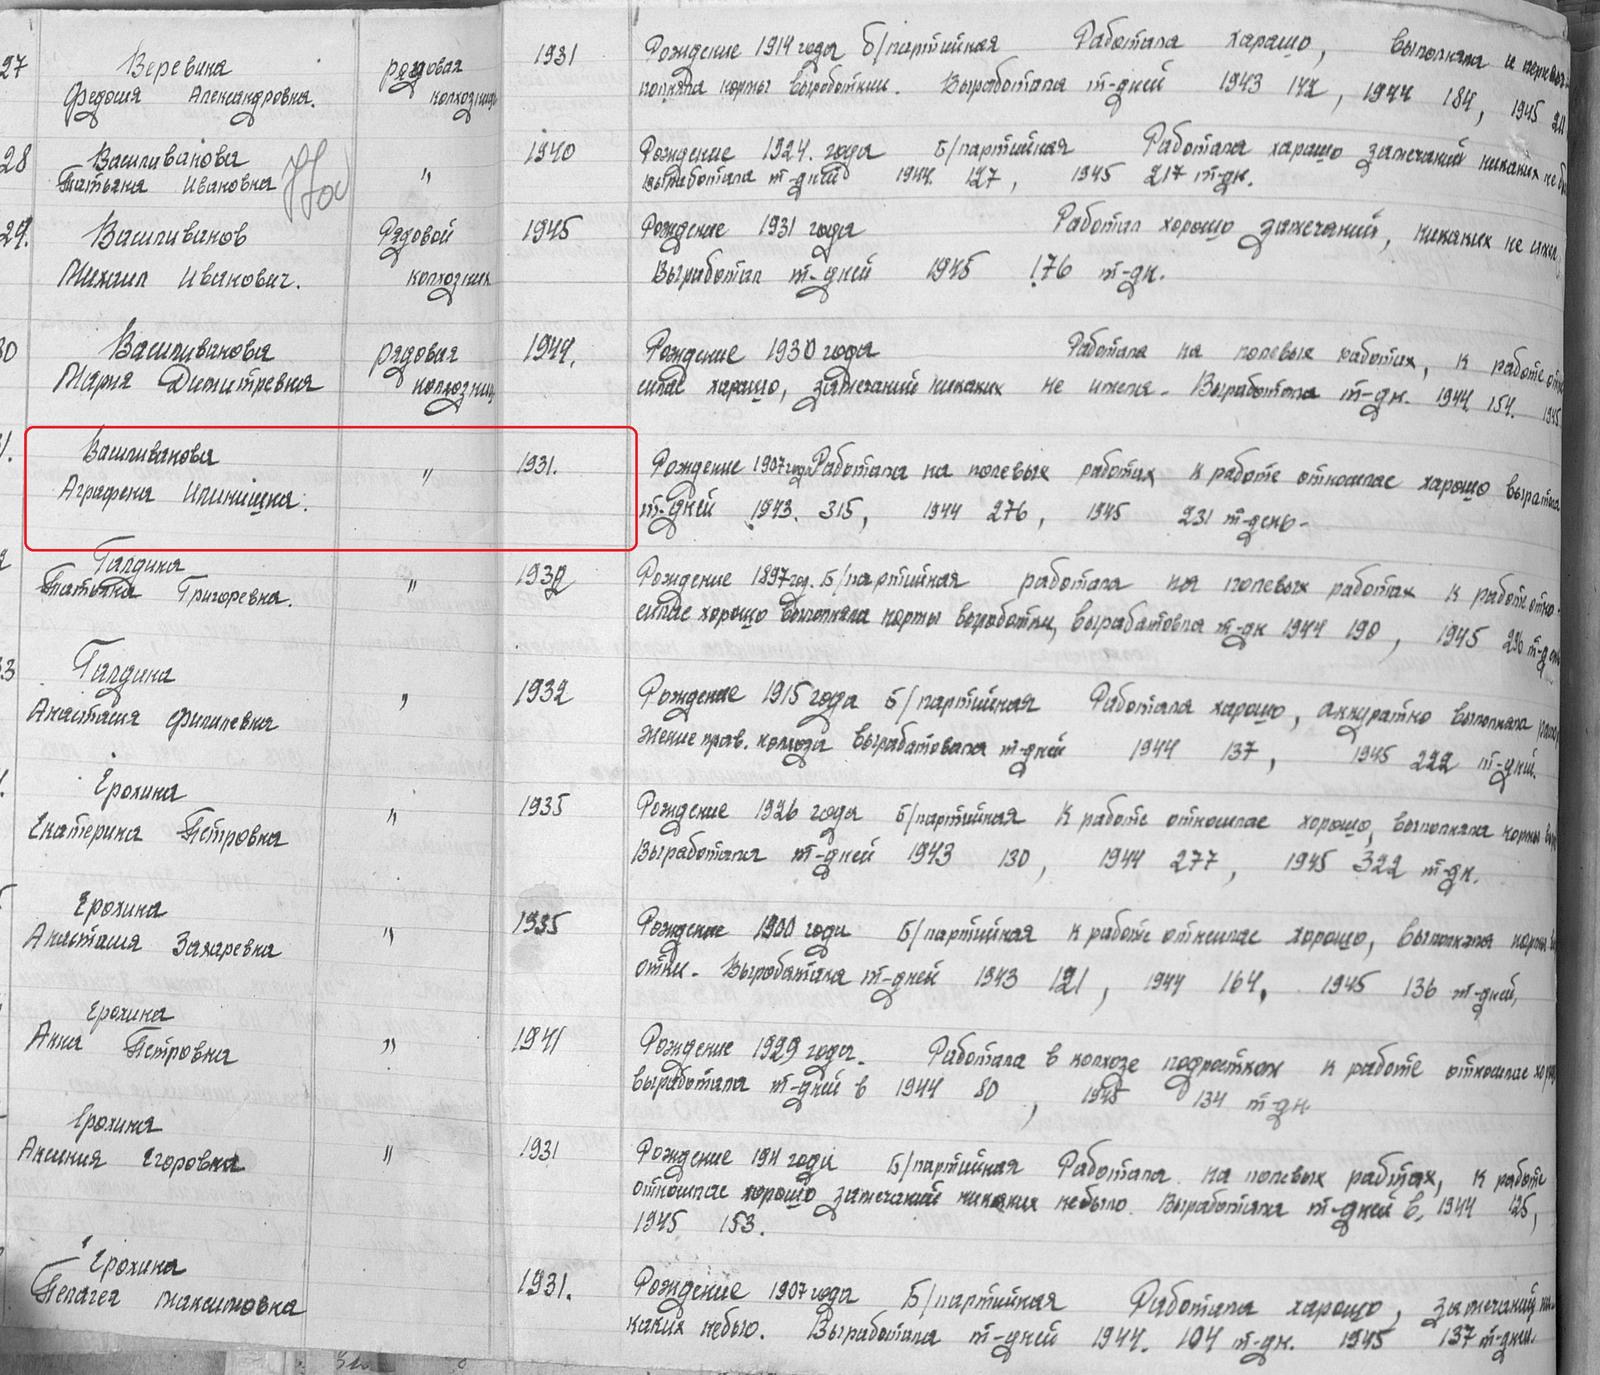 27 Веревина рядовая 1931 Рождение 1914 года б/партийная Работала харашо, выполняла и
Федосия Александровна. колхозница полняла нормы выработки. Выработала т-дней 1943 142, 1944 184, 1945 211
28 Васильиванова 1940 Рождение 1924 года б/партийная Работала харашо замечаний никаких не
Татьяна Ивановна " выработала т-дней 1944 127, 1945 217 т-дн.
29. Васильиванов Рядовой 1945 Рождение 1931 года Работал хорошо замечаний, никаких не имел,
Михаил Иванович. колхозник Выработал т-дней 1945 176 т-дн.
30 Васильиванова рядовая 1944. Рождение 1930 года Работала на полевых работах, к работе отно
Мария Дмитревна колхозниц силас харашо, замечаний никаких не имела. Выработала т-дн. 1944 154. 1945
31. Васильиванова " 1931. Рождение 1907 года Работала на полевых работах к работе относилас харашо
Аграфена Илинишна. т-дней 1943. 315, 1944 276, 1945 231 т-день-
2 Галдина 1932 Рождение 1897 год. Б/партийная работала на полевых работах к работе отно-
Татьяна Григоревна. " силас хорошо выполняла нормы выработки, выработовла т-дн 1944 190, 1945 236 т-день
33 Галдина 1932 Рождение 1915 года Б/партийная Работала харашо, аккуратно выполняла распор
Анастасия Филипевна " жение прав. колхоза выработовала т-дней 1944 137, 1945 222 т-дней.
Ерохина 1935 Рождение 1926 года б/партийная К работе относилас хорошо, выполняла нормы
Екатерина Петровна " Выработала т-дней 1943 130, 1944 277, 1945 322 т-дн.
Ерохина 1935 Рождение 1900 года Б/партийная к работе относилас хорошо, выполняла нормы
Анастасия Захаревна " отки. Выработала т-дней 1943 121, 1944 164, 1945 136 т-дней,
Ерохина 1941 Рождение 1929 года. Работала в колхозе подростком к работе относилас
Анна Петровна " выработала т-дней в 1944 80, 1945 134 т-дн.
Ерохина 1931 Рождение 1911 года Б/партийная Работала на полевых работах, к работе
Аксиния Егоровна " относилас хорошо замечаний никаких небыло. Выработала т-дней в 1944 125,
1945 153.
Ерохина 1931. Рождение 1907 года Б/партийная Работала харашо, замечаний ни-
Пелагея Максимовна каких небыло. Выработала т-дней 1944. 104 т-дн. 1945 137 т-дней.